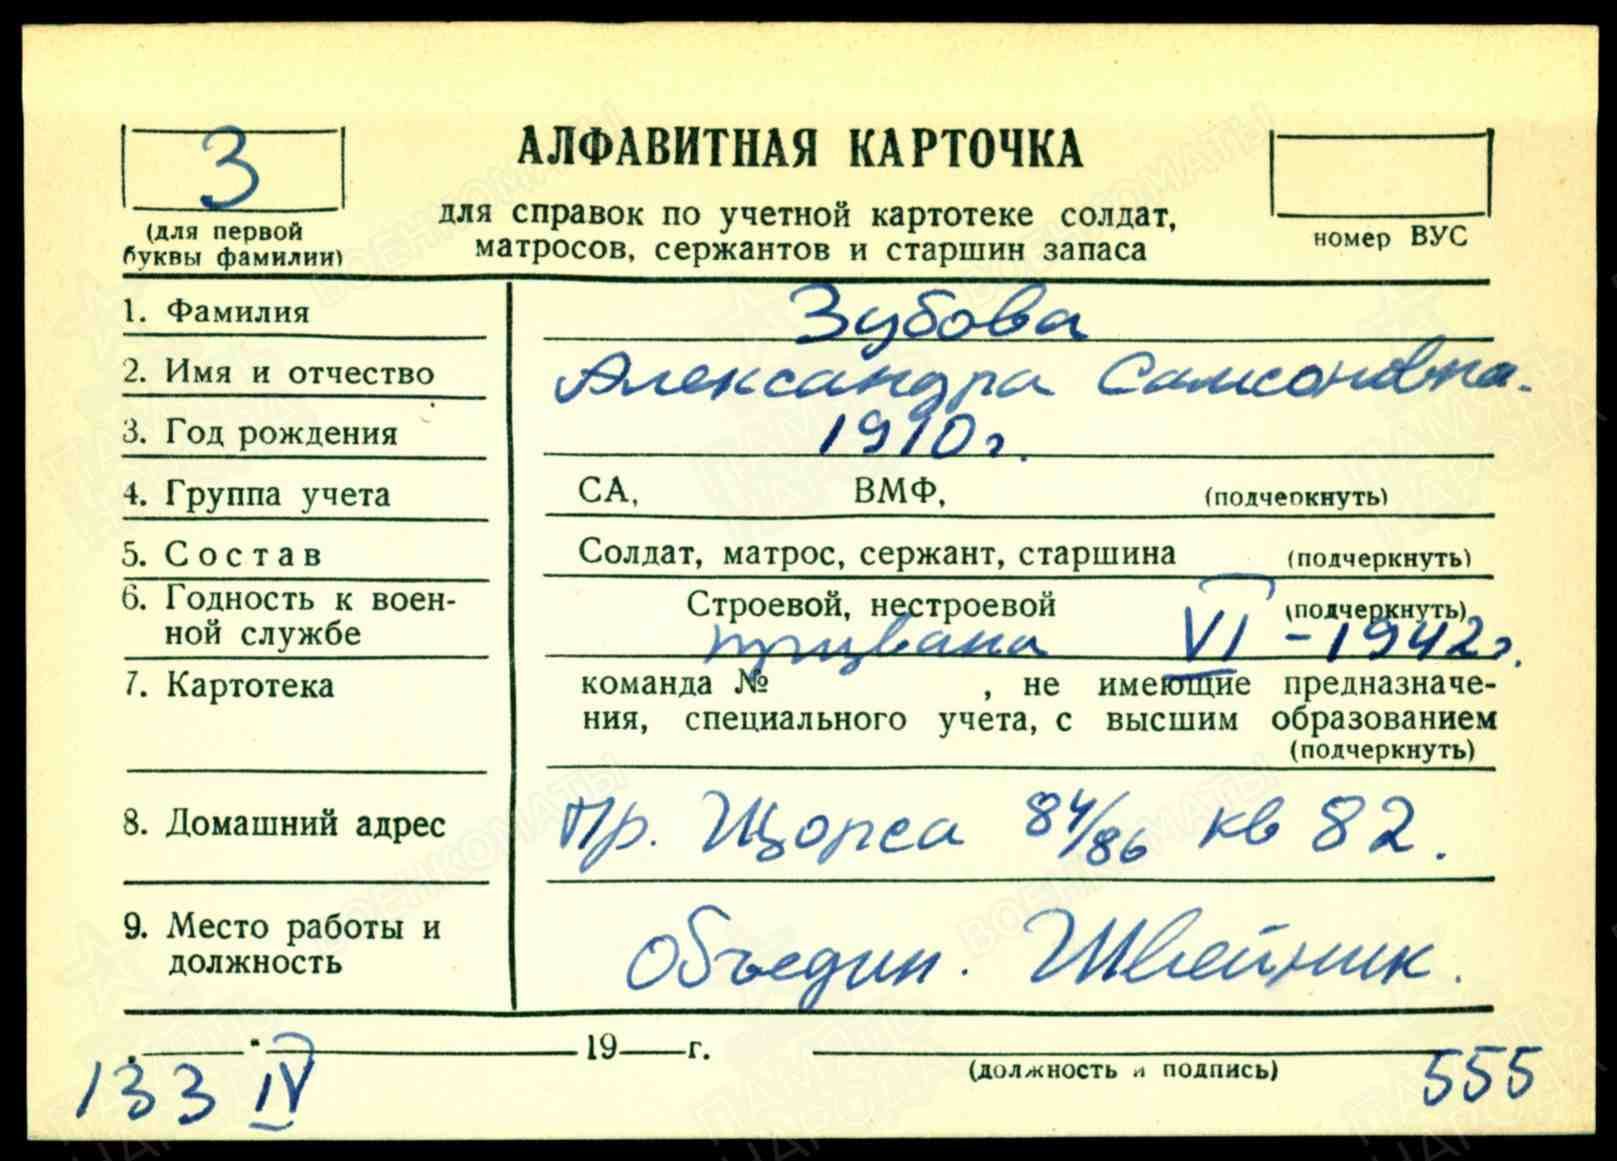 З
АЛФАВИТНАЯ КАРТОЧКА
(для первой
буквы фамилии)
для справок по учетной картотеке солдат,
матросов, сержантов и старшин запаса
номер ВУС
1. Фамилия Зубова
2. Имя и отчество Александра Самсоновна.
3. Год рождения 1910 г.
4. Группа учета СА, ВМФ, (подчеркнуть)
5. Состав Солдат, матрос, сержант, старшина (подчеркнуть)
6. Годность к воен- Строевой, нестроевой (подчеркнуть)
ной службе призвана VI - 1942 г.
7. Картотека команда № , не имеющие предназначе-
ния, специального учета, с высшим образованием
(подчеркнуть)
8. Домашний адрес Пр. Щорса 84/86 кв 82.
9. Место работы и
должность Объедин. Швейник.
" " 19 г.
(должность и подпись)
133 IV 555
ВОЕНКОМАТЫ
ПАМЯТЬ
НАРОДА